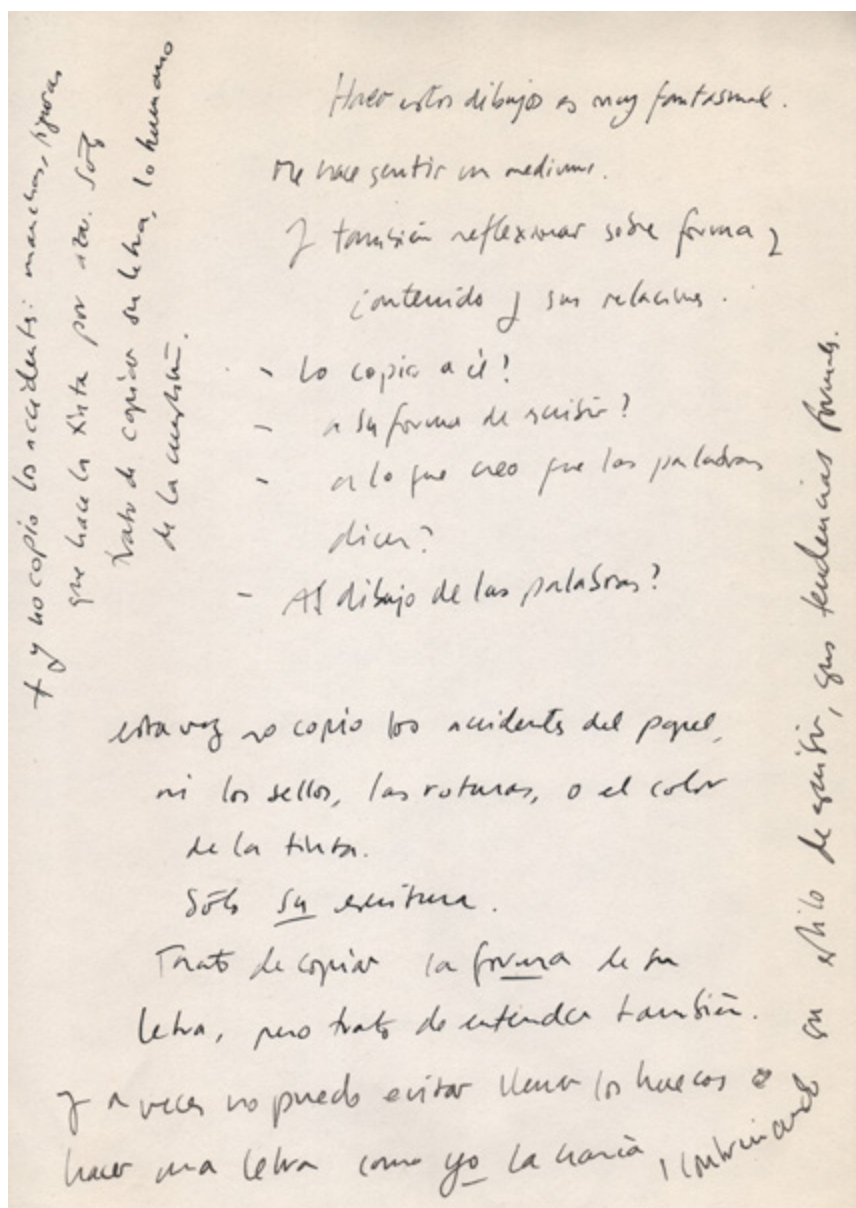 Hacer estos dibujos es muy fantasmal.
Me hace sentir un medium.
Y también reflexionar sobre forma y
contenido y sus relaciones.
- Lo copio a él?
- a su forma de escribir?
- a lo que creo que las palabras
dicen?
- Al dibujo de las palabras?
esta vez no copio los accidentes del papel,
ni los sellos, las roturas, o el color
de la tinta.
Sólo su escritura.
Trato de copiar la forma de su
letra, pero trato de entender también.
Y a veces no puedo evitar llenar los huecos o
hacer una letra como yo la haría, continuando
su estilo de escribir, sus tendencias formales.
+ y no copio los accidentes: manchas, figuras
que hace la tinta por azar. Sólo
trato de copiar su letra, lo humano
de la cuestión.